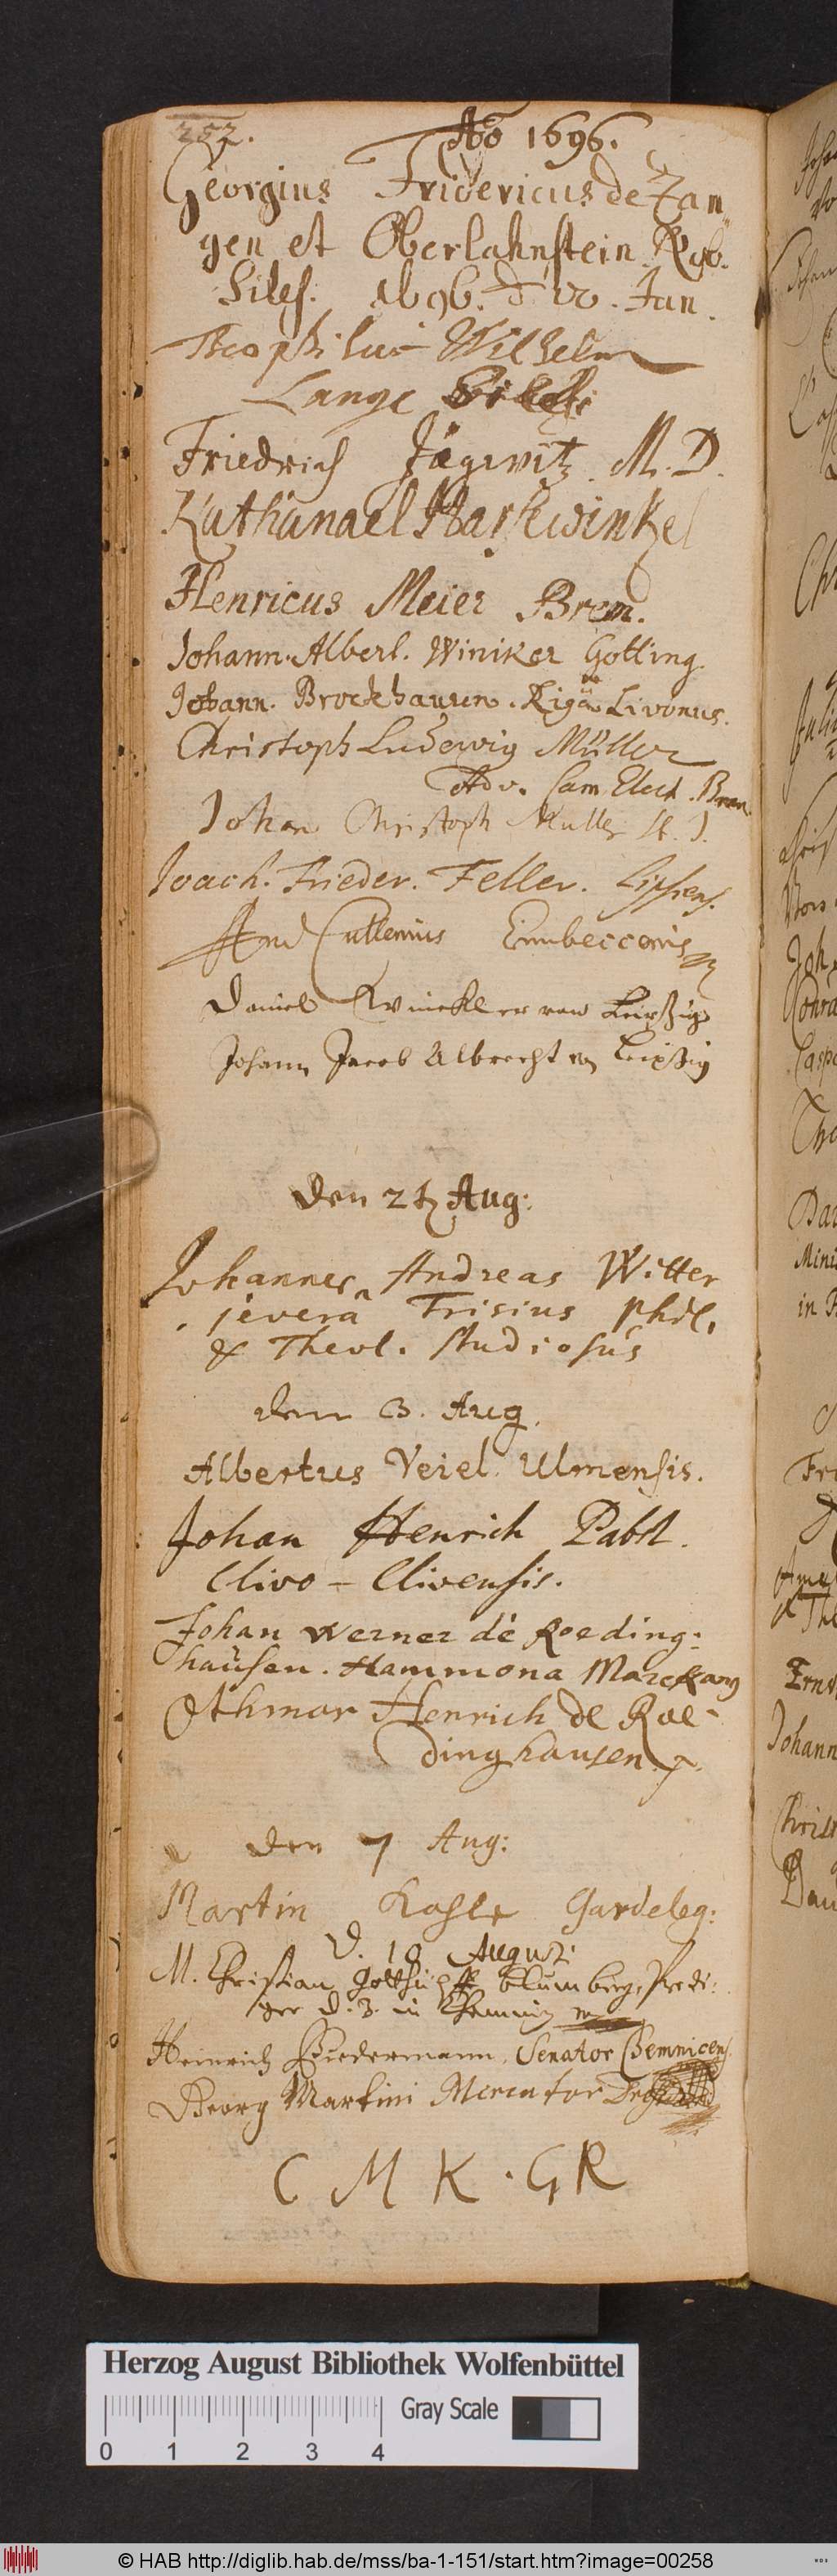 252.
Aō 1696.
Georgius Fridericus de Zan„
gen et Oberlahnstein Eq.
Siles. 1696. d. 20. Jan.
Theophilus Wilhelm
Lange
Friedrich Jägwitz. M. D.
Nathanael Harkwinkel
Henricus Meier Brem.
Johann. Albert. Winiker Gotting.
Johann. Brockhausen. Rigâ Livonus.
Christoph Ludewig Müller
Adv. Cam Elect. Bran.
Johan Christoph Muller
Joach. Frieder. Feller. Lipsiens.
And Cuttenius Einbeccensis
Daniel Winckler von Leipzig
Johann Jacob Albrecht von Leipzig
den Aug:
Johannes Andreas Witter
jevera Frisius Phil.
& Theol. Studiosus
den 3. Aug.
Albertus Veiel Ulmensis.
Johan Henrich Pabst.
Clivo - Clivensis.
Johan Werner de Roeding:
hausen. Hammona Marckanus
Othmar Henrich de Roe-
dinghausen.
den 7 Aug:
Martin Kahle Gardeleg:
D. 10 Augusti
M. Christian Gotthilff Blumberg, Predi:
ger d. Z. in Chemniz
Heinrich Biedermann, Senator Chemnicens
Georg Martini Mercator
C M K. G R
Herzog August Bibliothek Wolfenbüttel
Gray Scale
0 1 2 3 4
© HAB http://diglib.hab.de/mss/ba-1-151/start.htm?image=00258